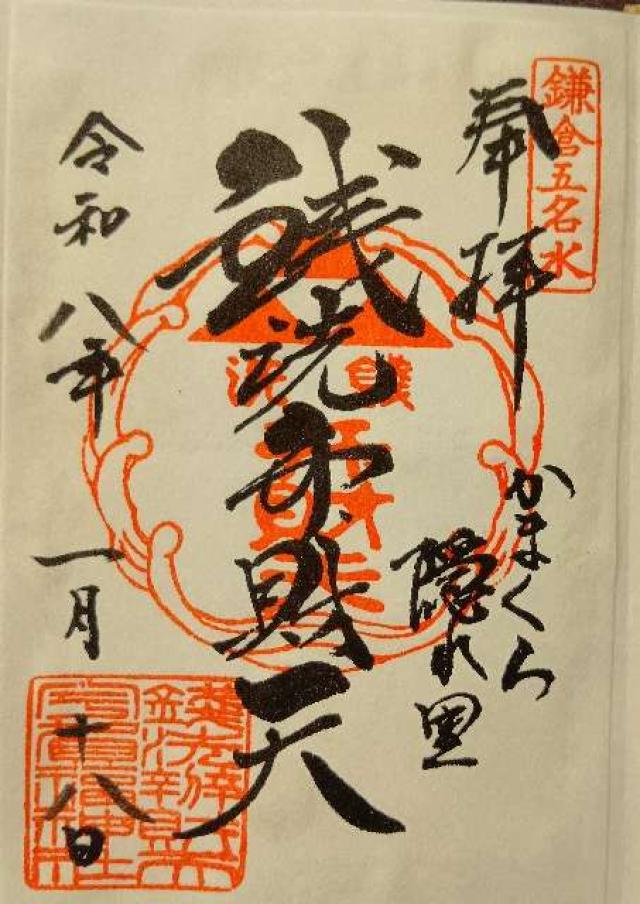 鎌倉五名水
奉拝
かまくら
隠れ里
銭洗弁財天
令和八年一月十八日